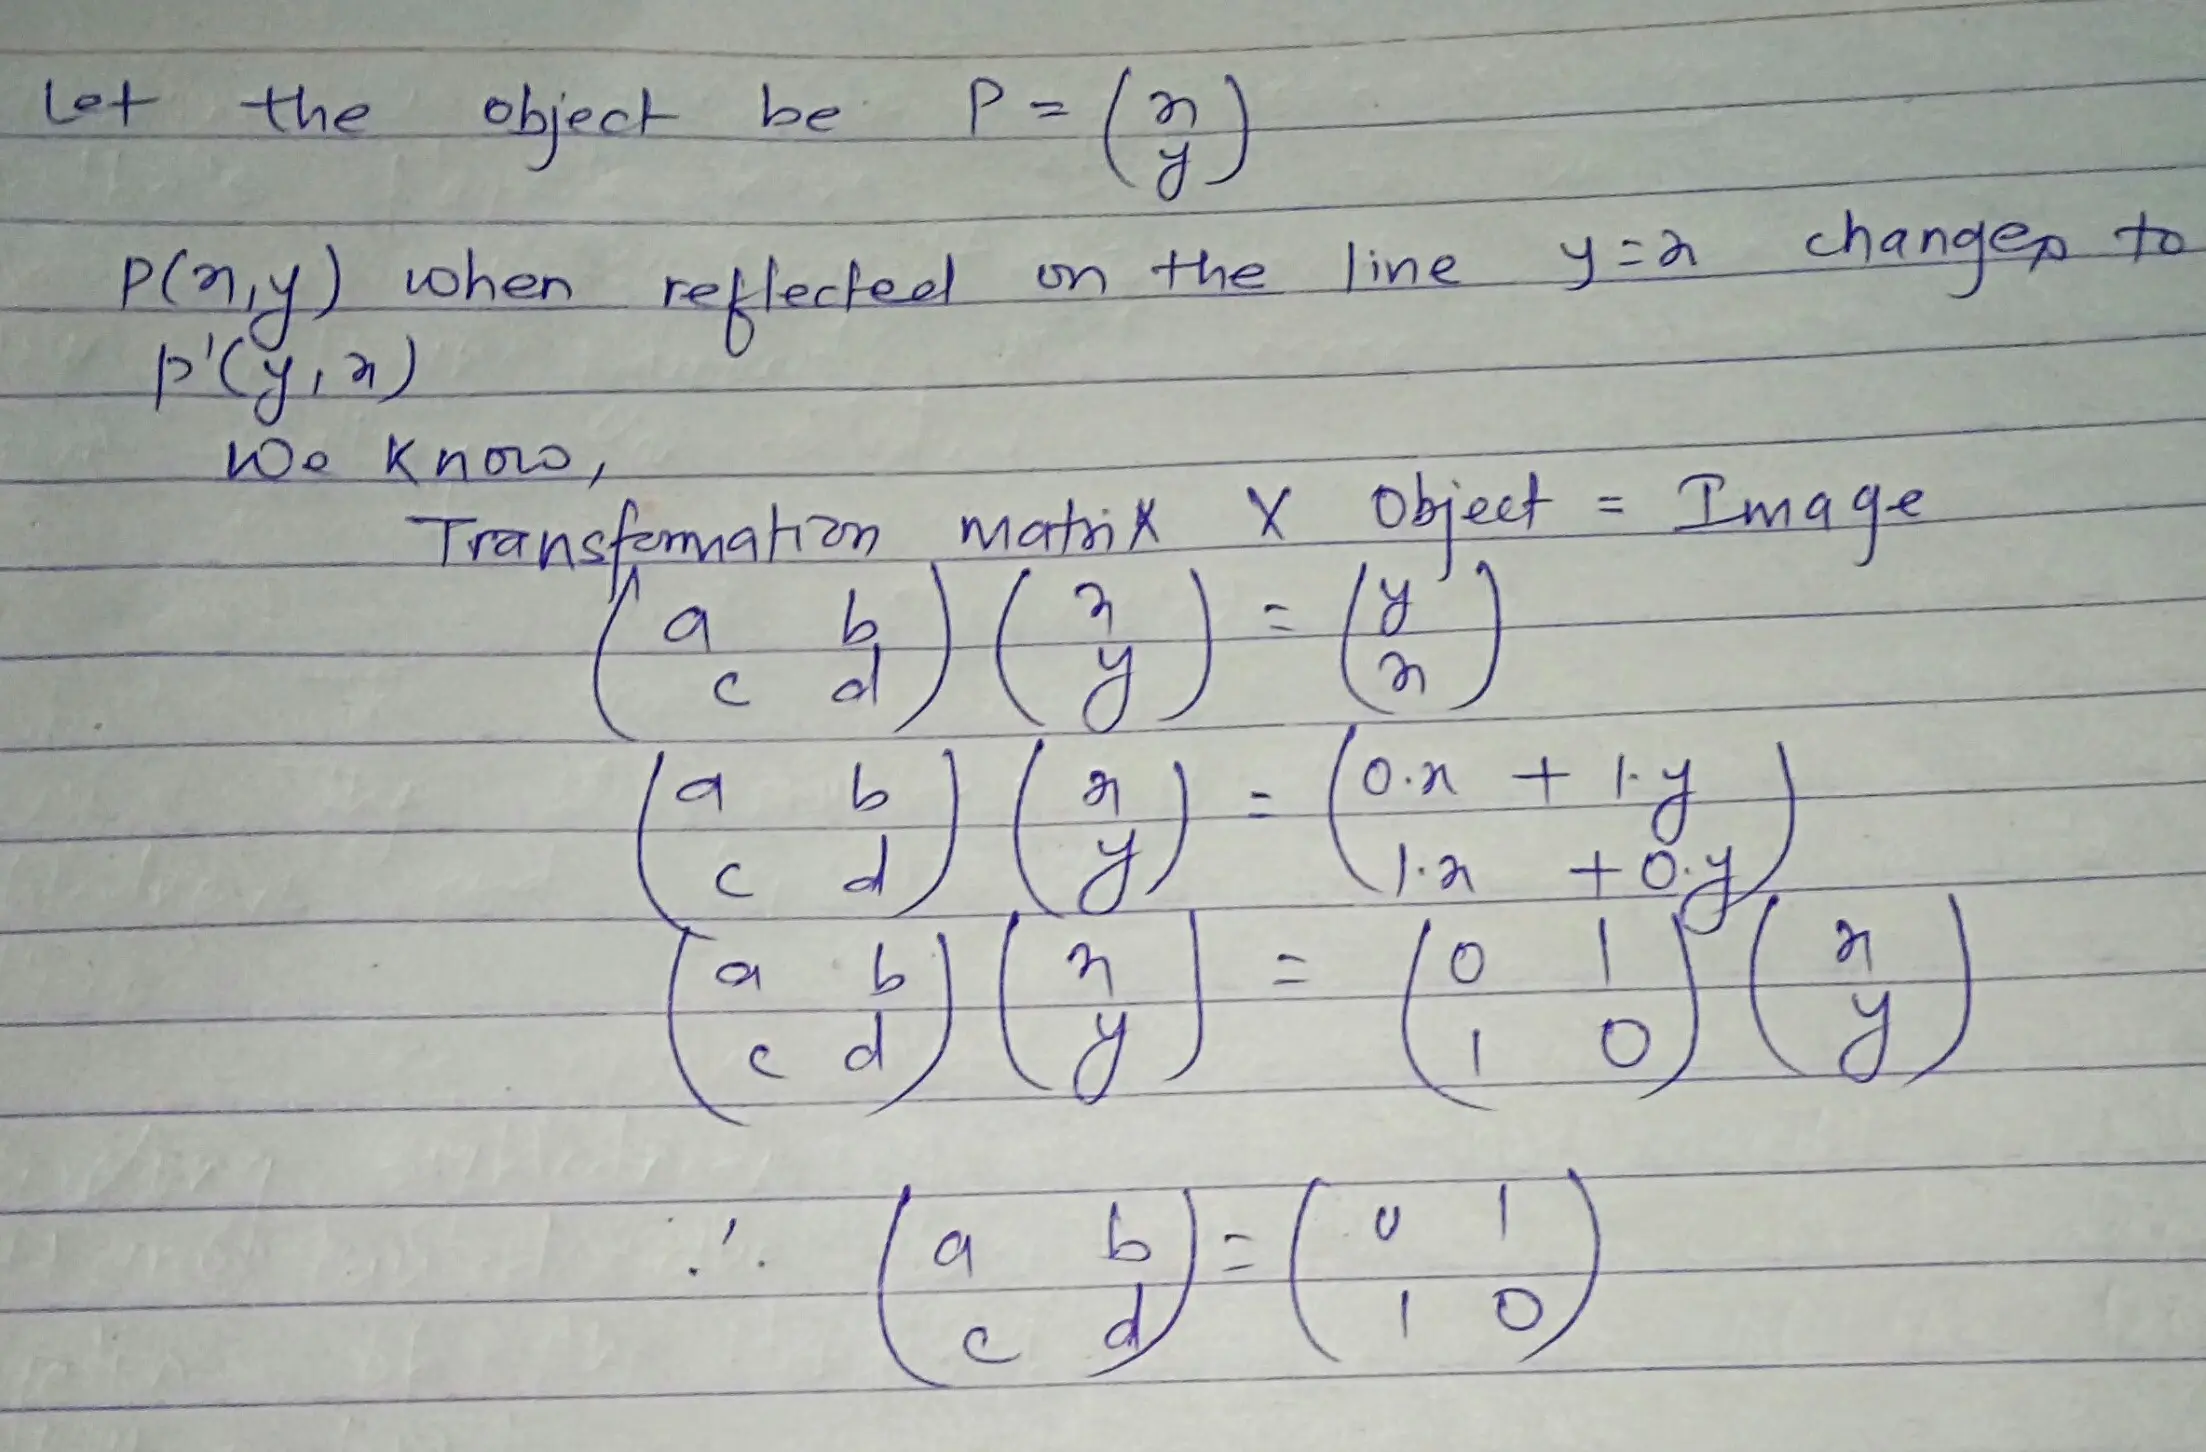 Let the object be P = (x
y)
P(x,y) when reflected on the line y=x changes to
P'(y,x)
We know,
Transformation matrix X Object = Image
(a b
c d) (x
y) = (y
x)
(a b
c d) (x
y) = (0.x + 1.y
1.x + 0.y)
(a b
c d) (x
y) = (0 1
1 0) (x
y)
∴ (a b
c d) = (0 1
1 0)